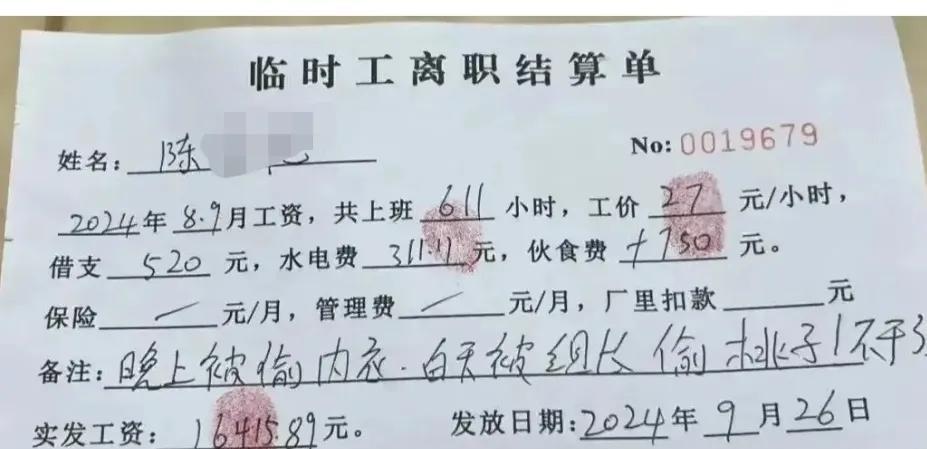 临时工离职结算单
姓名：陈 No: 0019679
2024年8.9月工资，共上班 611 小时，工价 27 元/小时，
借支 520 元，水电费 311.11 元，伙食费 +750 元。
保险 / 元/月，管理费 / 元/月，厂里扣款 元
备注：晚上被偷内衣.白天被组长偷桃子！不干了
实发工资：16415.89元。 发放日期：2024年 9 月 26 日